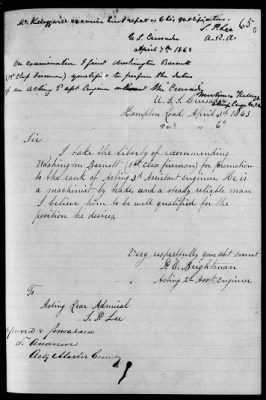 Mr. Kellogg will examine him & report as to his qualifications. 650
S. P. Lee
A. R. A.
U. S. S. Crusader
April 7th 1863
On examination I find Washington Barnett
1st Class fireman qualified to perform the duties
of an Acting 3d Asst Engineer the Crusader
Kellogg
U. S. S. Crusader
Hampton Roads April 5th 1863
Sir
I take the liberty of recommending
Washington Barnett (1st class fireman) for promotion
to the rank of Acting 3d Assistant Engineer. He is
a machinist by trade, and a steady reliable man
I believe him to be well qualified for the
position he desires.
Very respectfully your obt servant
H. C. Brightman
Acting 2d Asst. Engineer
To
Acting Rear Admiral
S. P. Lee
Approved & forwarded
T. Andrews
Actg Master Comdg